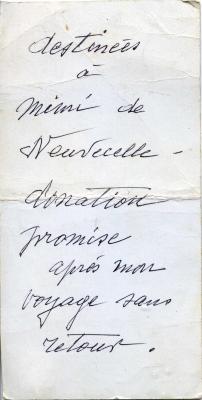 destinées
à
mimi de
Neuvecelle -
donation
promise
après mon
voyage sans
retour.